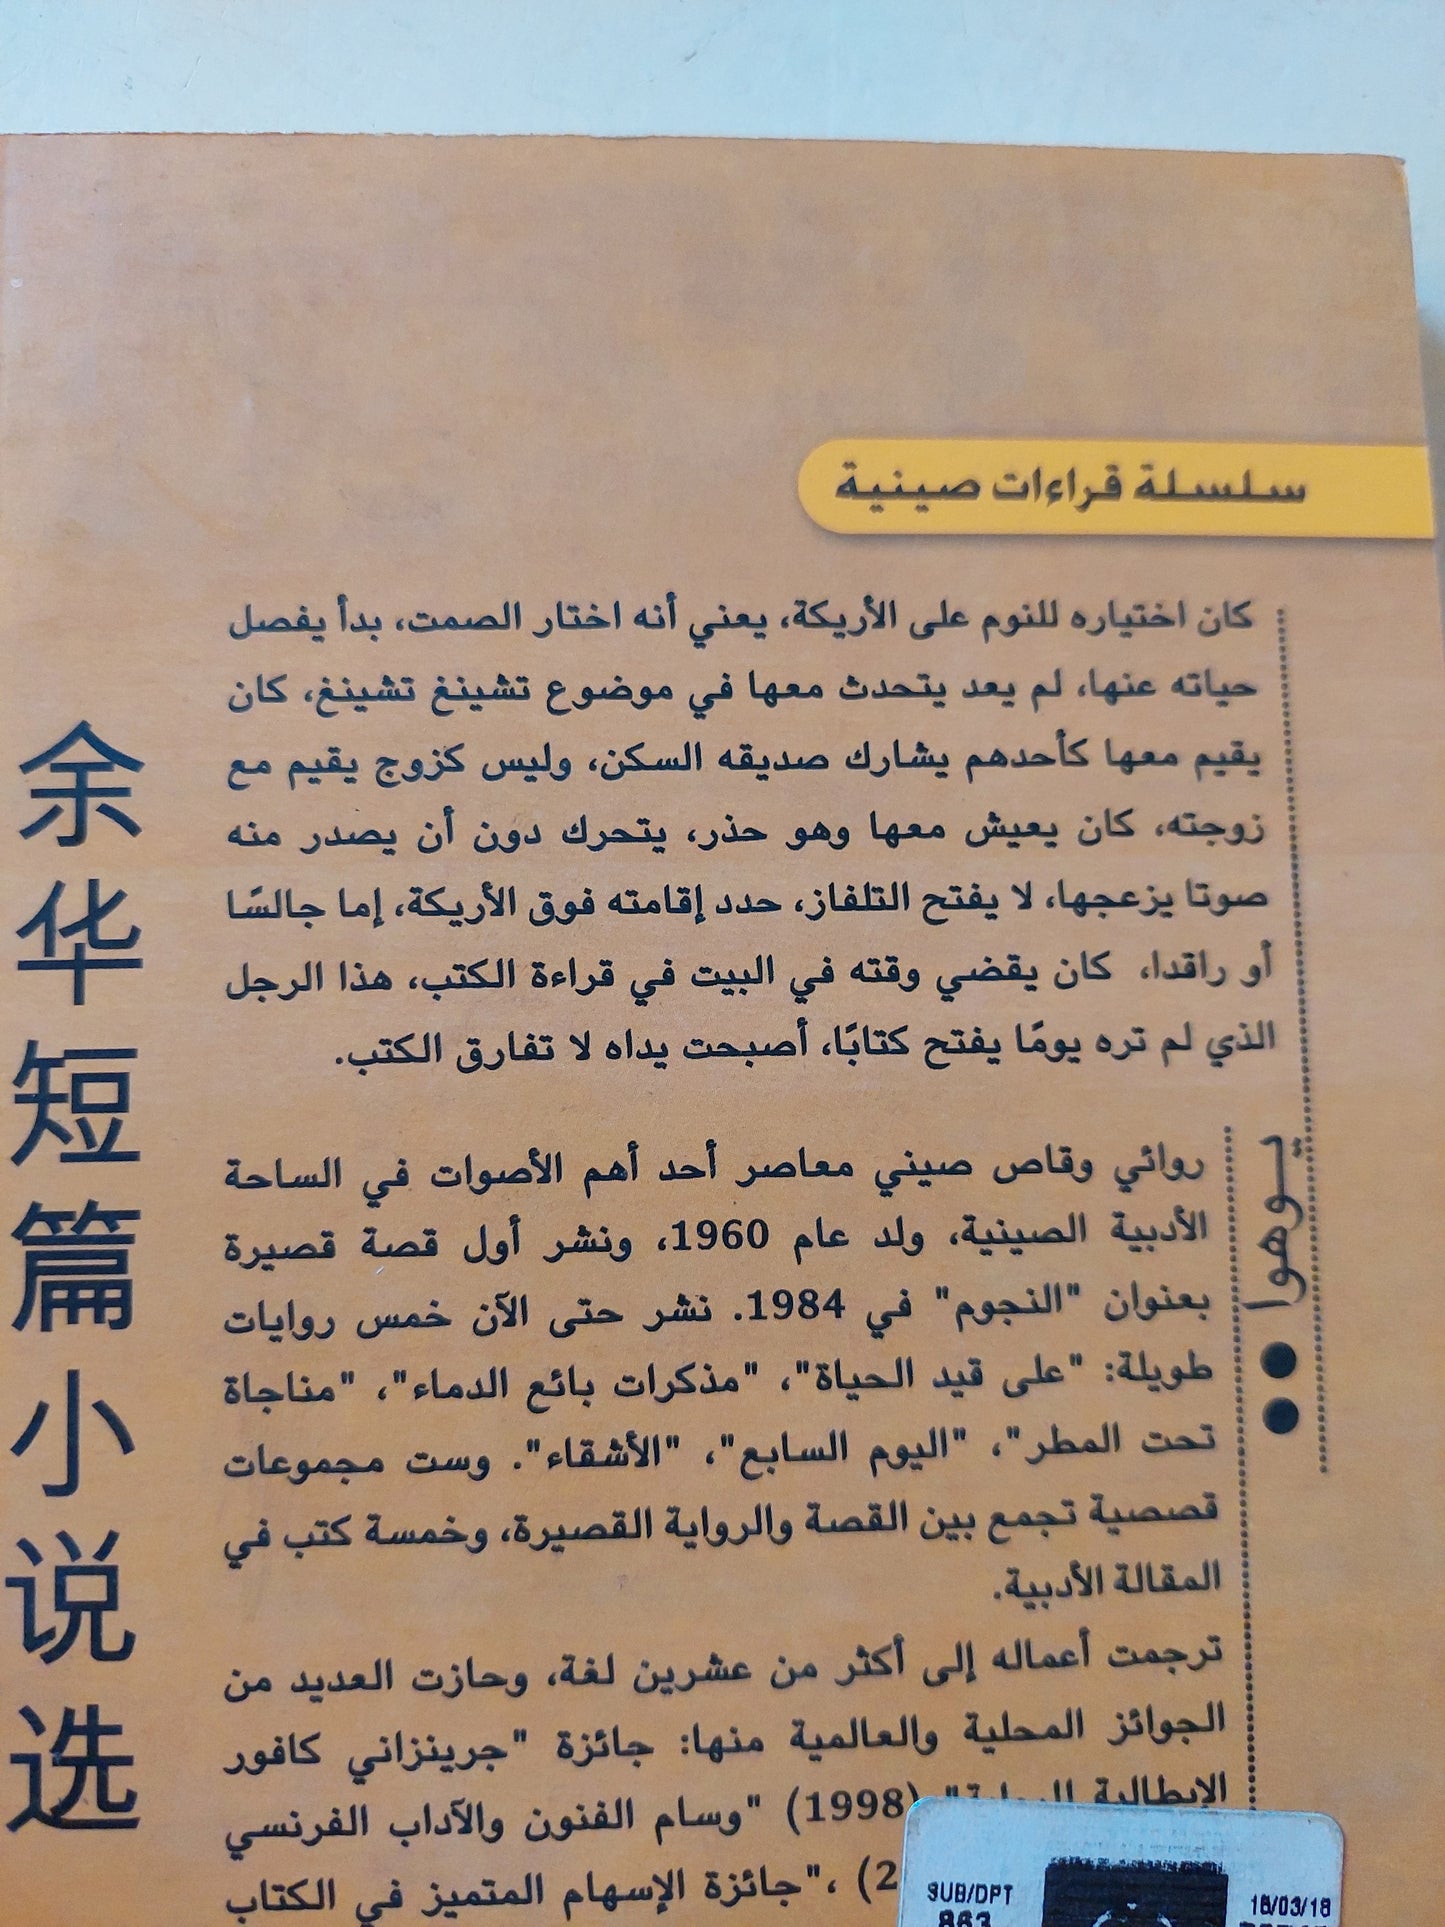 سلسلة قراءات صينية
كان اختياره للنوم على الأريكة، يعني أنه اختار الصمت، بدأ يفصل
حياته عنها، لم يعد يتحدث معها في موضوع تشينغ تشينغ، كان
يقيم معها كأحدهم يشارك صديقه السكن، وليس كزوج يقيم مع
زوجته، كان يعيش معها وهو حذر، يتحرك دون أن يصدر منه
صوتا يزعجها، لا يفتح التلفاز، حدد إقامته فوق الأريكة، إما جالسًا
أو راقدا، كان يقضي وقته في البيت في قراءة الكتب، هذا الرجل
الذي لم تره يومًا يفتح كتابًا، أصبحت يداه لا تفارق الكتب.
يوهوا
روائي وقاص صيني معاصر أحد أهم الأصوات في الساحة
الأدبية الصينية، ولد عام 1960، ونشر أول قصة قصيرة
بعنوان "النجوم" في 1984. نشر حتى الآن خمس روايات
طويلة: "على قيد الحياة"، "مذكرات بائع الدماء"، "مناجاة
تحت المطر"، "اليوم السابع"، "الأشقاء". وست مجموعات
قصصية تجمع بين القصة والرواية القصيرة، وخمسة كتب في
المقالة الأدبية.
ترجمت أعماله إلى أكثر من عشرين لغة، وحازت العديد من
الجوائز المحلية والعالمية منها: جائزة "جرينزاني كافور
الإيطالية (1998) "وسام الفنون والآداب الفرنسي
"جائزة الإسهام المتميز في الكتاب
余华短篇小说选
SUB/DPT
863
18/03/18